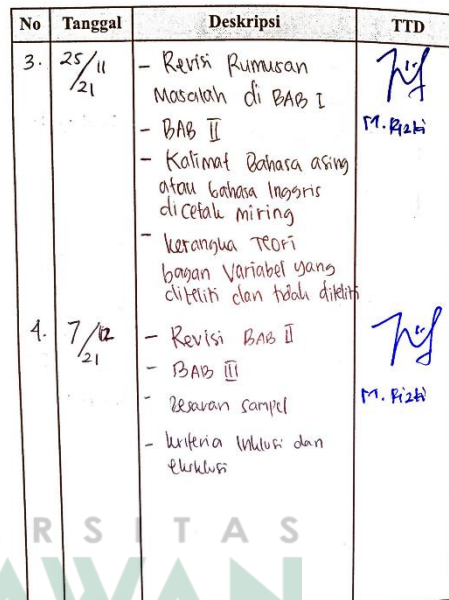 No Tanggal Deskripsi TTD
3. 25/11/21 - Revisi Rumusan
Masalah di BAB I
- BAB II
M. Rizki
- Kalimat Bahasa asing
atau bahasa Inggris
dicetak miring
- kerangka Teori
bagan Variabel yang
diteliti dan tidak diteliti
4. 7/12/21 - Revisi BAB II
- BAB III
- Besaran sampel
M. Rizki
- kriteria Inklusi dan
eksklusi
R S I T A S
AWAN